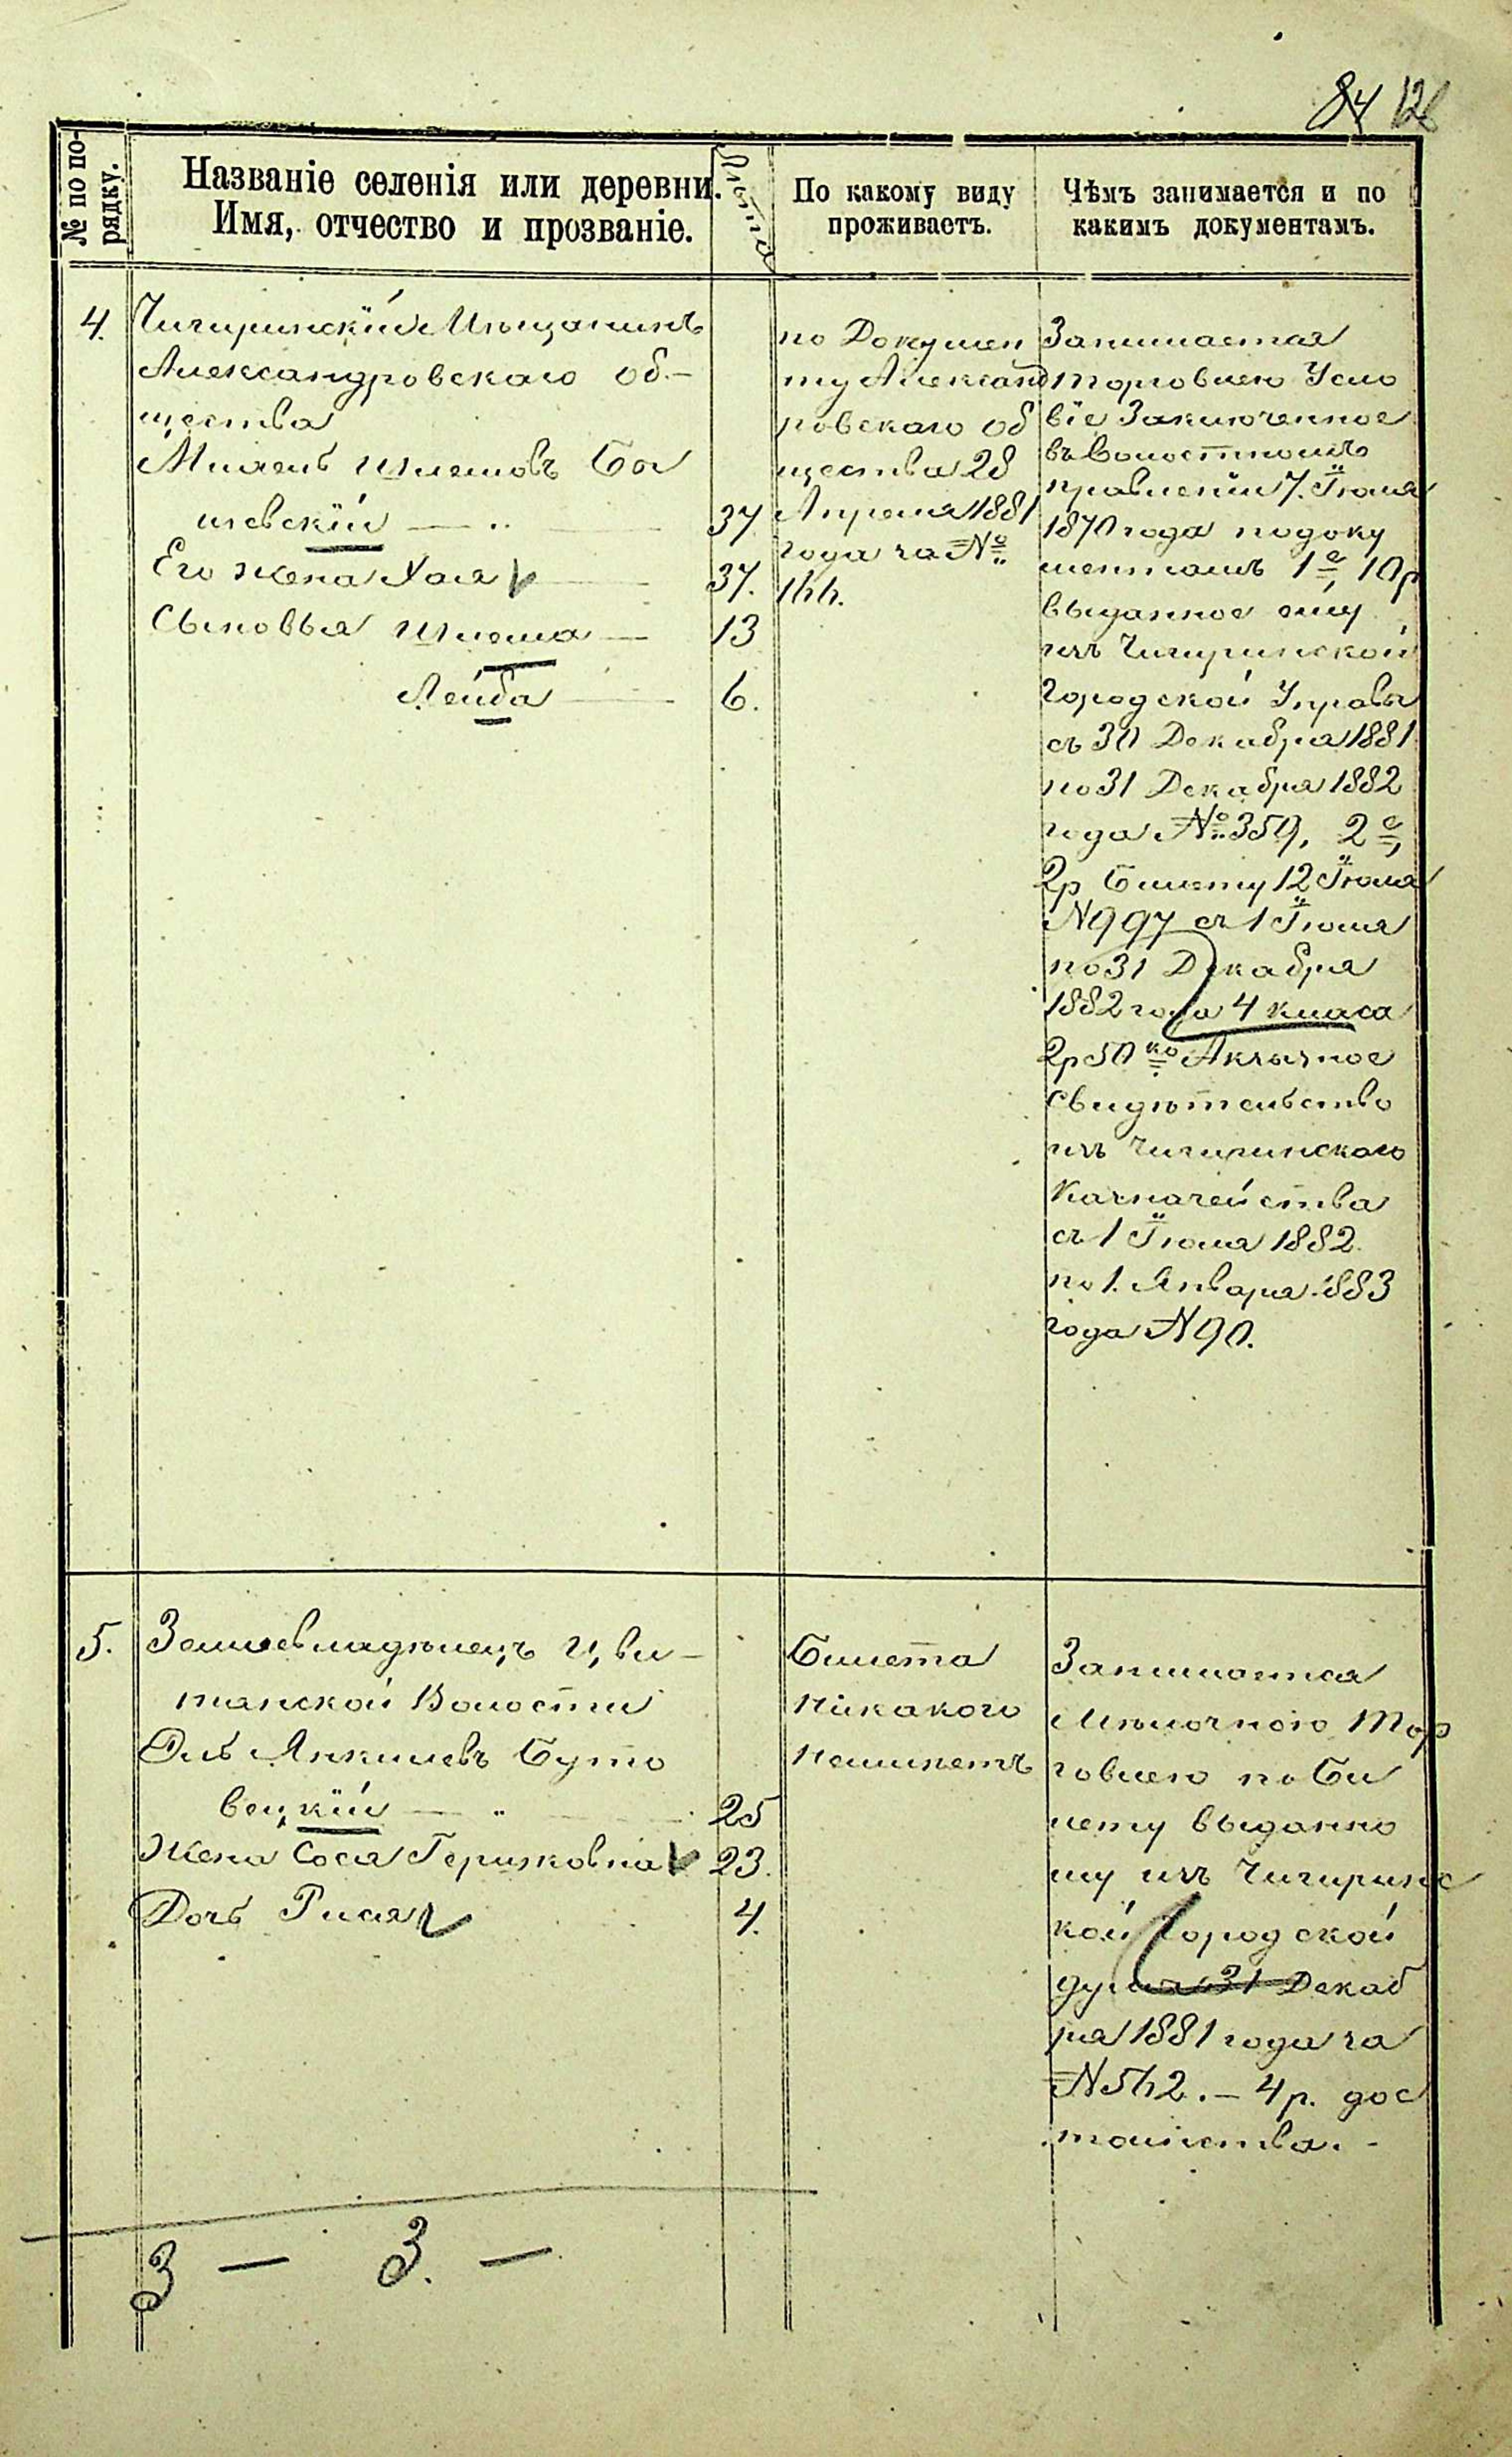 84 126
№ по по-
рядку.
Названіе селенія или деревни.
Имя, отчество и прозваніе.
Лѣта
По какому виду
проживаетъ.
Чѣмъ занимается и по
какимъ документамъ.
4.
Чигиринскій Мѣщанинъ
Александровскаго об-
щества
Шлемовъ Бы
шевскій — „ —
37
Его жена Хая
37.
Сыновья Шлема —
13
Лейба —
6.
по Докумен
ту Александ
ровскаго об
щества 28
Апреля 1881
года за №
Занимается
торговлею Усло
віе Заключенное
въ Волостномъ
правленіи 7. Іюля
1870 года по доку
ментамъ 1е, 10р
выданное ему
изъ Чигиринской
Городской Управы
съ 30 Декабря 1881
по 31 Декабря 1882
года № 359, 2е,
2р Билету 12 Іюля
N 997 съ 1 Іюля
по 31 Декабря
1882 года 4 класа
2р 50 ко Акцызное
Свидѣтельство
изъ Чигиринскаго
Казначейства
съ 1 Іюля 1882
по 1. Января 1883
года N 90.
5.
Землевладѣлецъ Цви-
тянской Волости
Эль Янкилевъ Буто
вецкій — „ —
25
Жена Сося Гершковна
23.
Дочь Рися
4.
Билета
Никакого
Неимѣетъ
Занимается
Мѣлочною Тор
говлею по Би
лету выданно
му изъ Чигиринс
кой Городской
думы 31 Декаб
ря 1881 года за
N 542. — 4 р. дос
тоинства. -
3 — 3. —